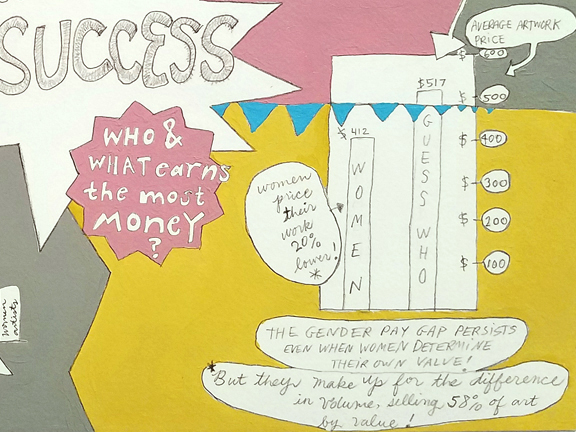 SUCCESS
AVERAGE ARTWORK
PRICE
$ 600
$517
$ 500
WHO &
WHAT earns
the most
MONEY
?
$ 412
$ 400
WOMEN
GUESS WHO
women
price
their
work
20%
lower!
*
$ 300
$ 200
$ 100
women
artists
THE GENDER PAY GAP PERSISTS
EVEN WHEN WOMEN DETERMINE
THEIR OWN VALUE!
*But they make up for the difference
in volume, selling 58% of art
by value!